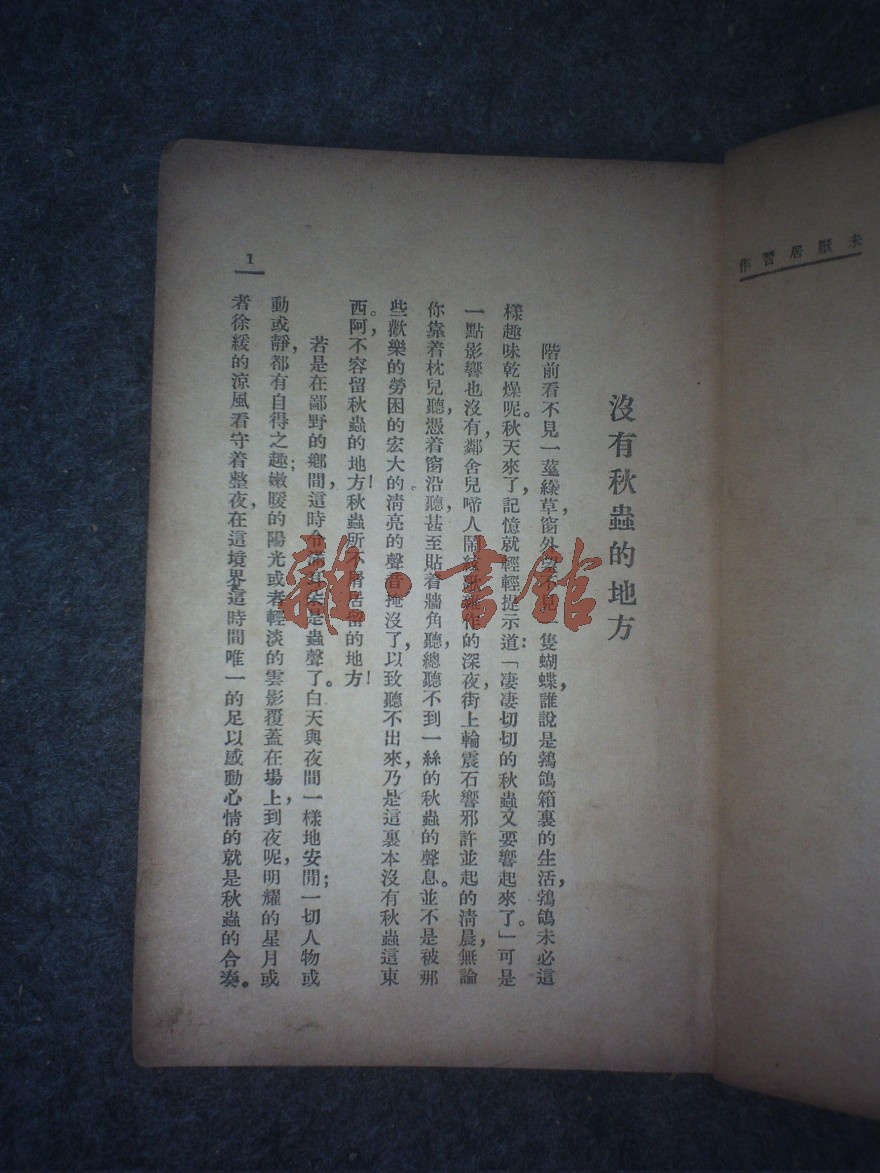 未厭居習作
沒有秋蟲的地方
階前看不見一莖綠草，窗外望不見一隻蝴蝶，誰說是鵓鴿箱裏的生活，鵓鴿未必這
樣趣味乾燥呢。秋天來了，記憶就輕輕提示道：「淒淒切切的秋蟲又要響起來了。」可是
一點影響也沒有，鄰舍兒啼人鬧絃歌雜作的深夜，街上輪震石響邪許並起的清晨，無論
你靠着枕兒聽，憑着窗沿聽，甚至貼着牆角聽，總聽不到一絲的秋蟲的聲息。並不是被那
些歡樂的勞困的宏大的清亮的聲音掩沒了，以致聽不出來，乃是這裏本沒有秋蟲這東
西。阿，不容留秋蟲的地方！秋蟲所不屑居留的地方！
若是在鄙野的鄉間，這時令滿耳朵是蟲聲了。白天與夜間一樣地安閒；一切人物或
動或靜，都有自得之趣；嫩暖的陽光或者輕淡的雲影覆蓋在場上，到夜呢，明耀的星月或
者徐緩的涼風看守着整夜，在這境界這時間唯一的足以感動心情的就是秋蟲的合奏。
1
雜·書館